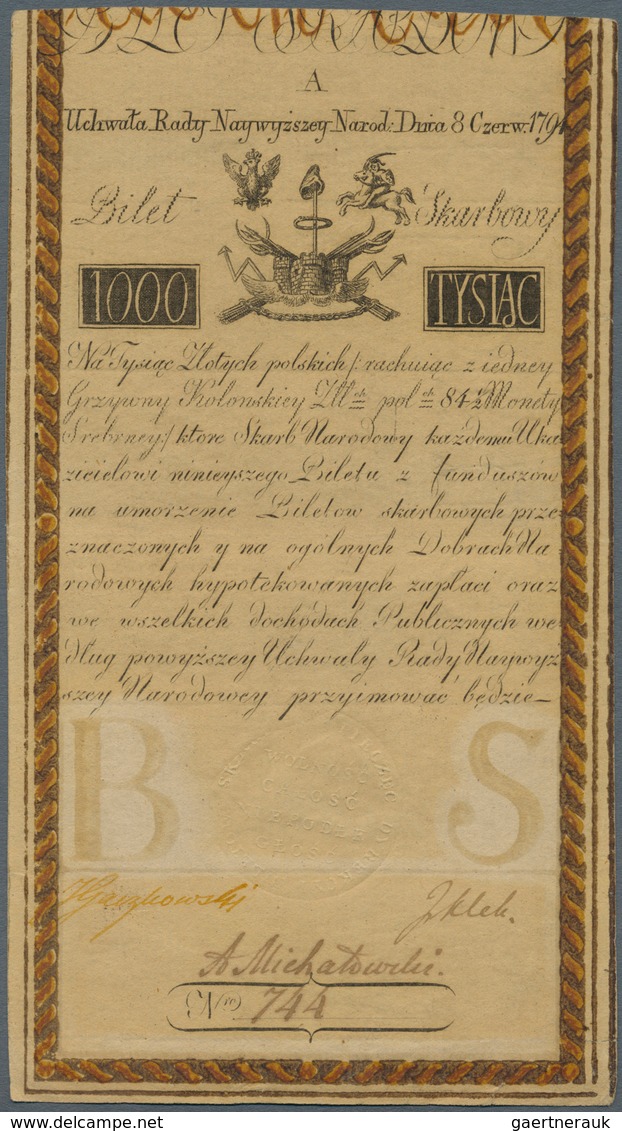 A
Uchwała Rady Naywyższey Narod: Dnia 8 Czerw: 1794
Bilet Skarbowy
1000 TYSIĄC
Na Tysiąc Złotych polskich /: rachuiąc z iedney
Grzywny Kolonskiey Zll ch pol ch 84½ Monety
Srebrney :/ ktore Skarb Narodowy każdemu Uka
zicielowi ninieyszego Biletu z funduszów
na umorzenie Biletow skarbowych prze
znaczonych y na ogólnych Dobrach Na
rodowych hypotekowanych zapłaci oraz
we wszelkich dochodach Publicznych we
dług powyższey Uchwały Rady Naywyz
szey Narodowey przyimować będzie
B S
WOLNOŚĆ
CAŁOŚĆ
NIEPODLE
GŁOŚĆ
A Michałowski.
Nro 744
www.delcampe.net gaertnerauk